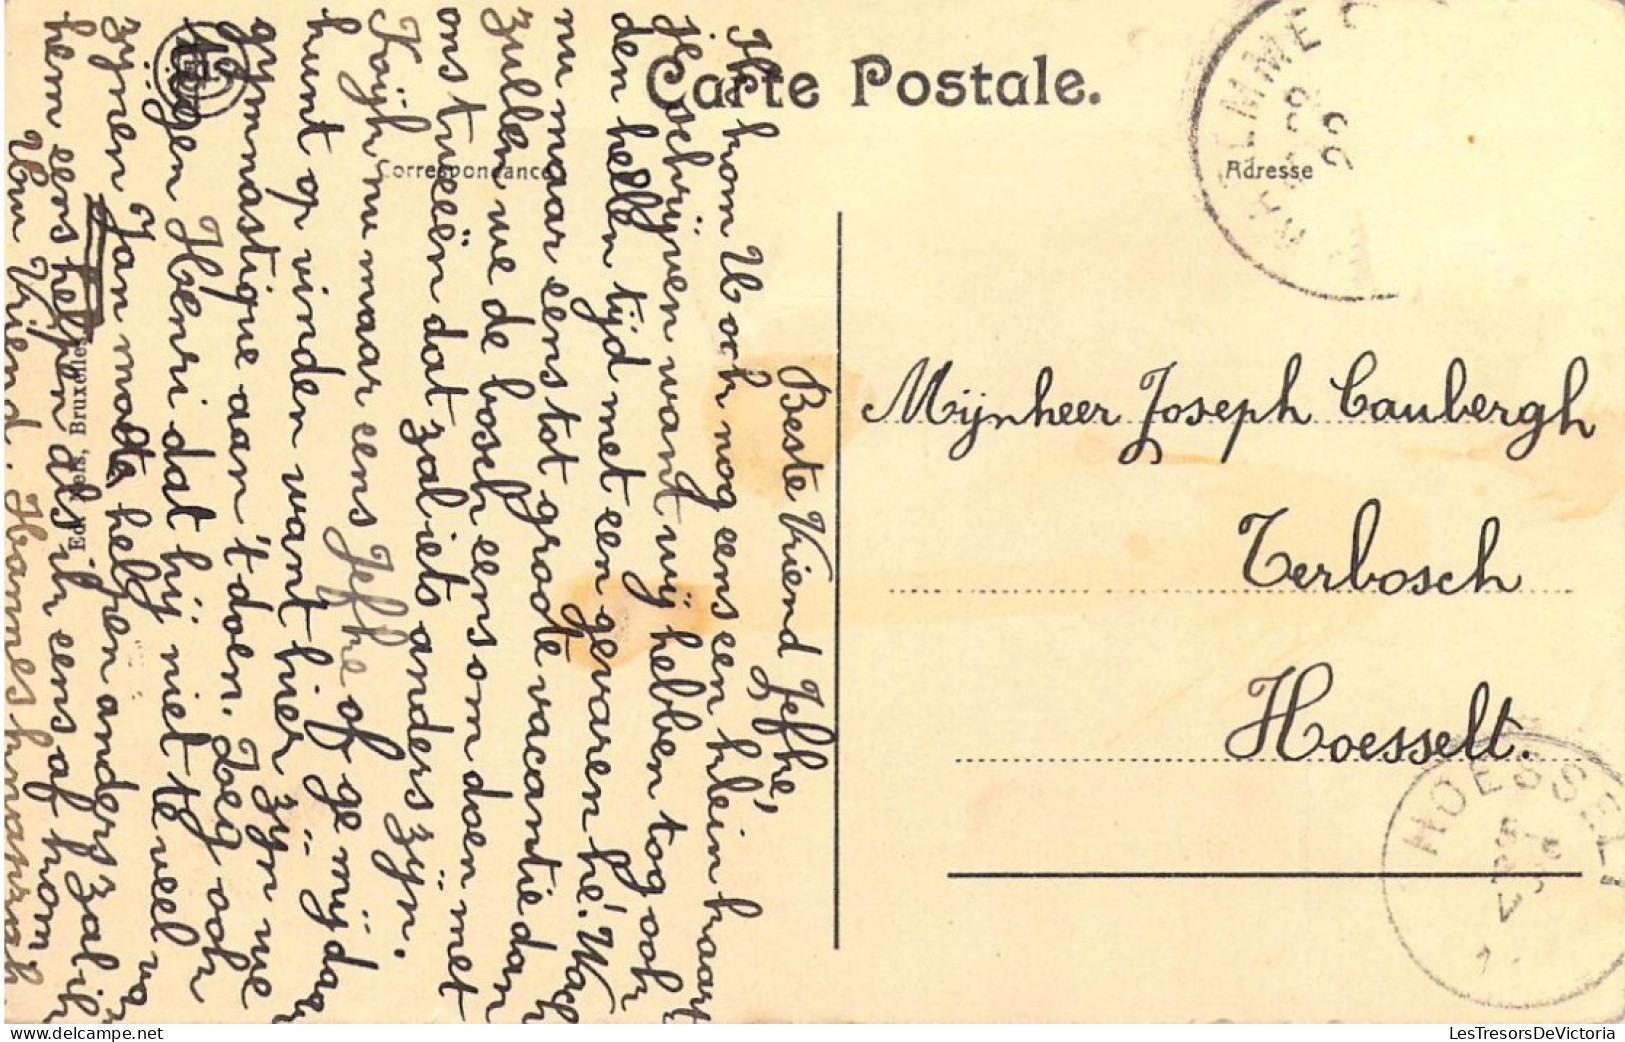 Carte Postale.
Correspondance
Adresse
Beste Vriend Jefke,
Ik kom U ook nog eens een klein kaart
je schrijven want wij hebben tog ook
den hellen tijd met een gevaren hé! Wach
nu maar eens tot groote vacantie dan
zullen we de bosch eens om doen met
ons tweeën dat zal iets anders zijn.
Kaijk nu maar eens Jefke of ge mij daar
kunt op vinden want hier zijn we
gymnastique aan 't doen. Zeg ook
tegen Henri dat hij niet te veel va
zijnen Jan helpen anders zal ik
hem eens helpen als ik eens af kom.
Uw Vriend. Hannes
Mijnheer Joseph Caubergh
Terbosch
Hoesselt.
HOESSELT
Bruxelles
LesTresorsDeVictoria
www.delcampe.net